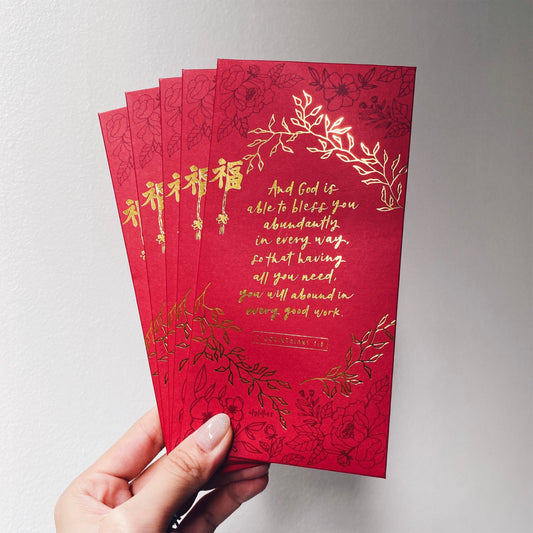 福
福
福
福
福
And God is
able to bless you
abundantly
in every way,
so that having
all you need,
you will abound in
every good work